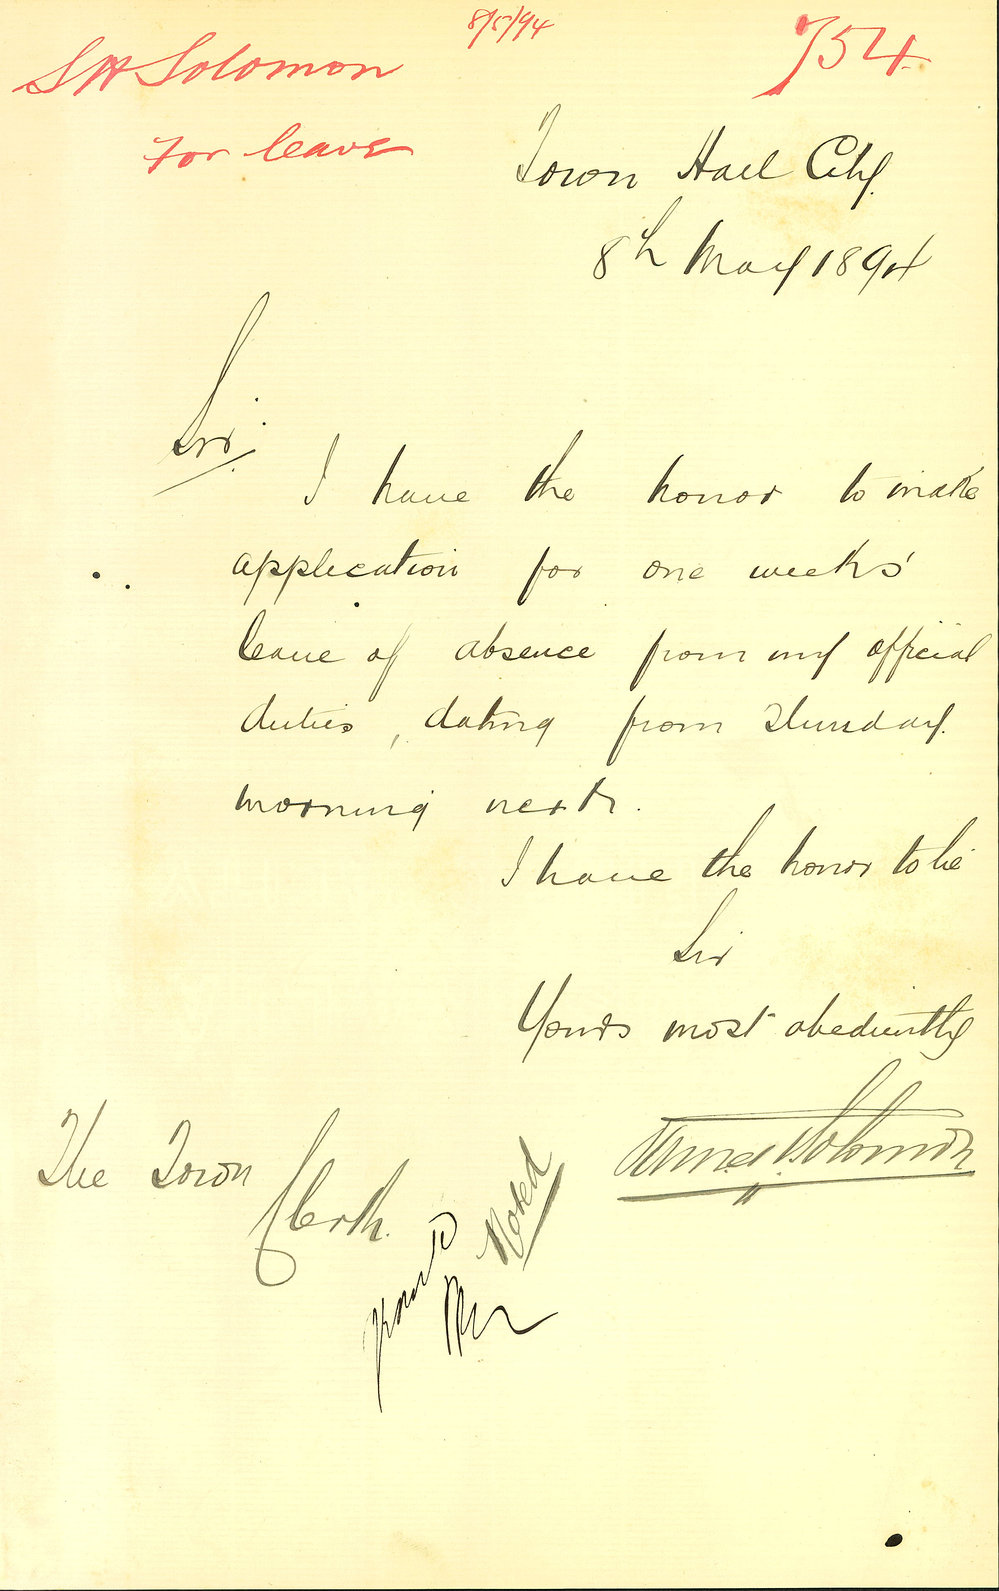 8/5/94
754.
S H Solomon
For leave
Town Hall City.
8th May 1894
Sir,
I have the honor to make
application for one weeks'
leave of absence from my official
duties, dating from Thursday
morning next.
I have the honor to be
Sir
Yours most obediently
Solomon
The Town
Clerk.
Noted